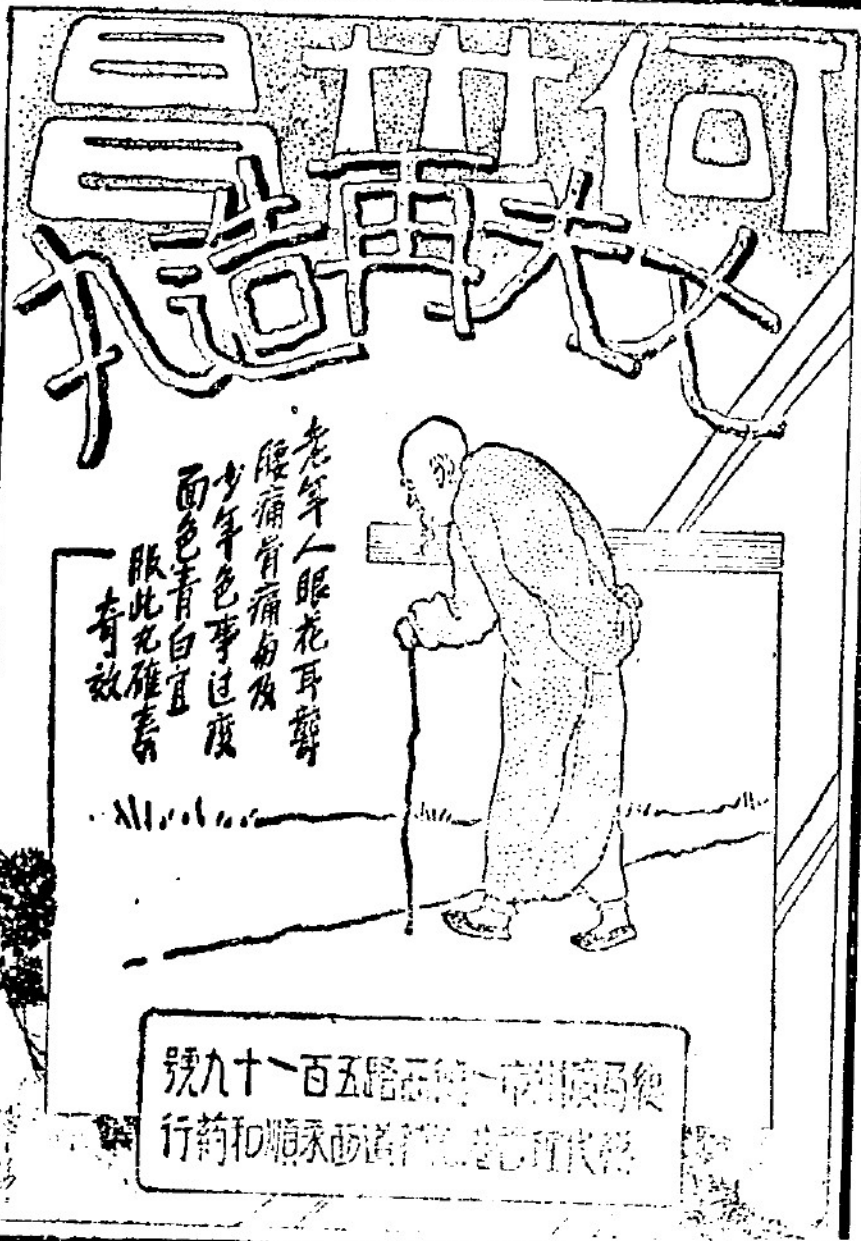 何世昌
再造丸
老年人眼花耳聾
腰痛骨痛及
少年色事过度
面色青白宜
服此丸確奏
奇效
總局廣州市一德西路五百一十九號
總代理香港道西順和葯行